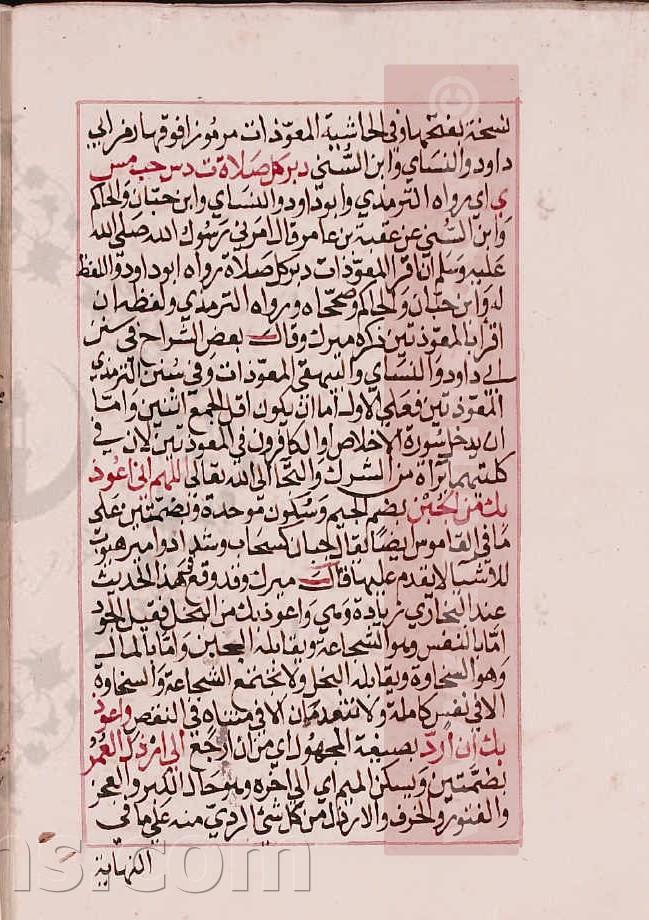 نسخة بفتحها وفي الحاشية المعوذات مرموزا فوقها رمز ابي
داود والنساي وابن السني دبر كل صلاة ت د س حب مس
ي اي رواه الترمذي وابو داود والنساي وابن حبان والحاكم
وابن السني عن عقبة بن عامر قال امرني رسول الله صلى الله
عليه وسلم ان اقرا المعوذات دبر كل صلاة رواه ابو داود واللفظ
له وابن حبان والحاكم وصححاه ورواه الترمذي ولفظه ان
اقرا بالمعوذتين ذكره ميرك وقال بعض الشراح في سنن
ابي داود والنساي والبيهقي المعوذات وفي سنن الترمذي
المعوذتين فعلى الاول اما ان يكون اقل الجمع اثنين واما
ان يدخل سورة الاخلاص او الكافرون في المعوذتين لان في
كلتيهما براة من الشرك والتجا الى الله تعالى اللهم اني اعوذ
بك من الجبن بضم الجيم وسكون موحدة وبضمتين على
ما في القاموس ايضا يقال جبان كسحاب وشداد وامير هيوب
للاشيا لا يقدم عليها قال ميرك وقد وقع في هذا الحديث
عند البخاري زيادة وهي واعوذ بك من البخل فقيل الجود
اما بالنفس وهو الشجاعة ويقابله الجبن واما بالمال
وهو السخاوة ويقابله البخل ولا تجتمع الشجاعة والسخاوة
الا في نفس كاملة ولا تنعدمان الا في متناه في النقص واعوذ
بك ان ارد بصيغة المجهول اي من ان ارجع الى ارذل العمر
بضمتين ويسكن الميم اي الى اخره وهو حال الكبر والعجز
والفتور والخرف والارذل من كل شئ الردي منه على ما في
النهاية
ns.com